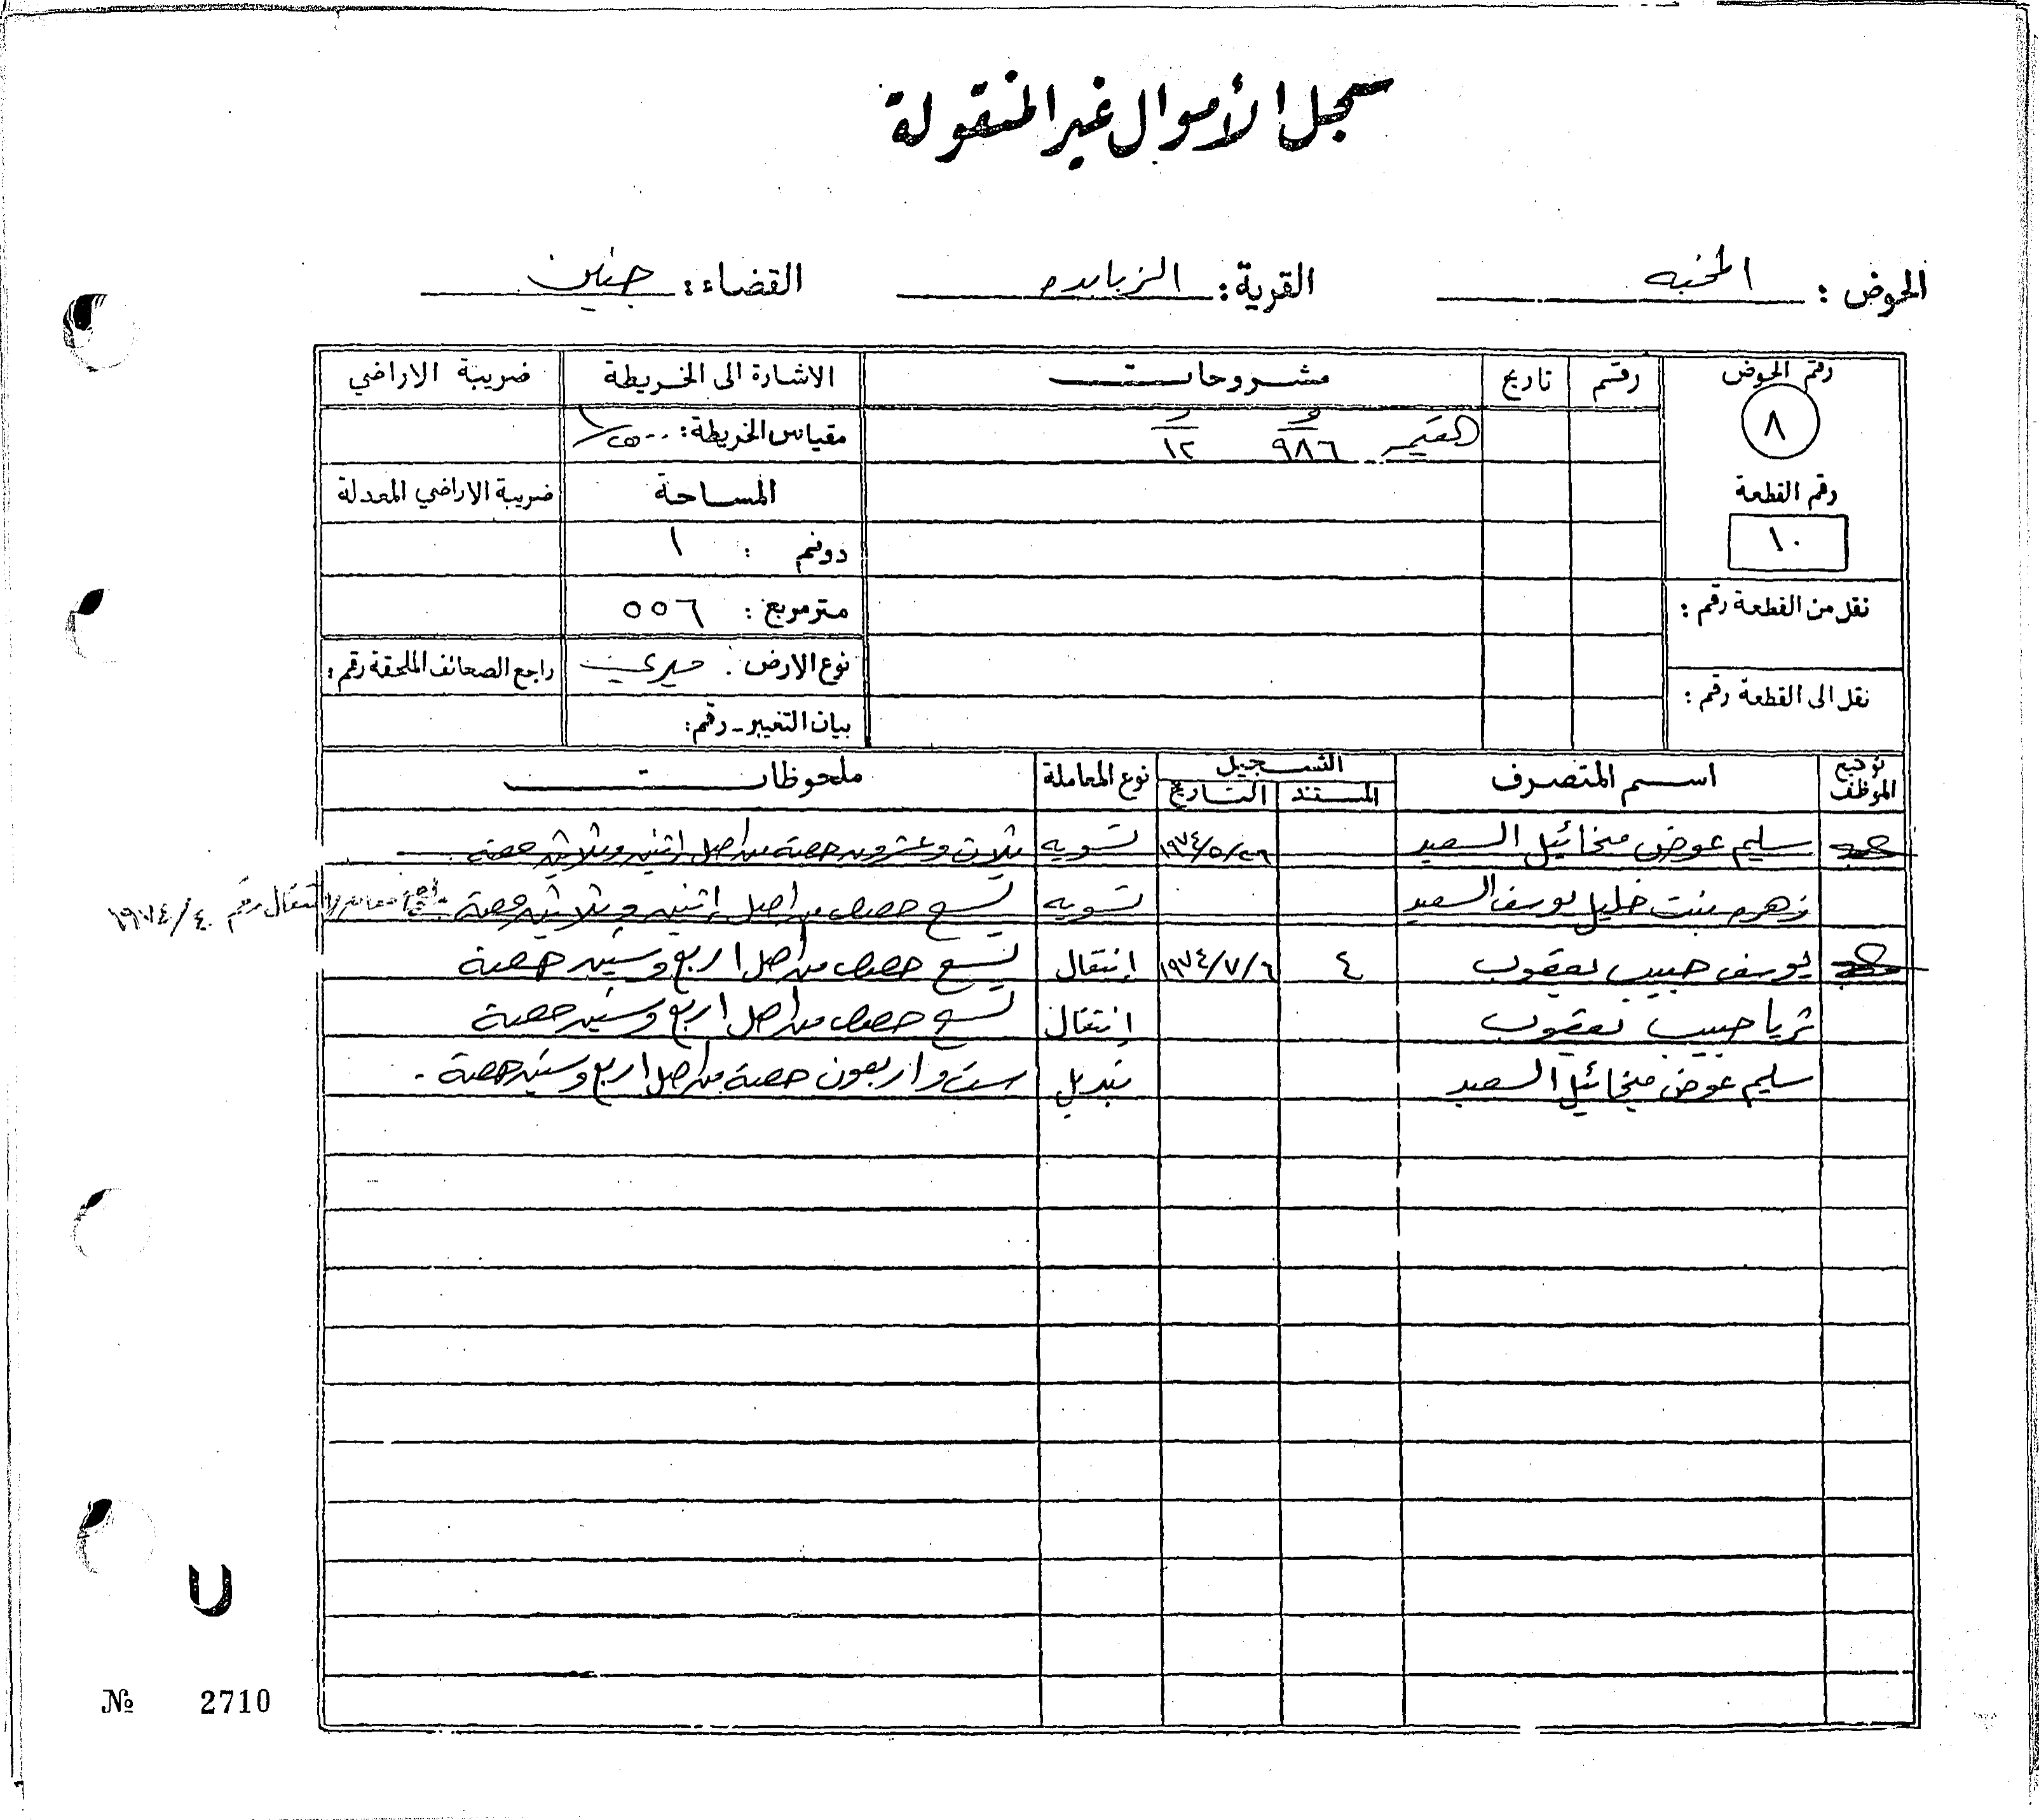 سجل الأموال غير المنقولة
الحوض : المخبه القرية : الزبابده القضاء : جنين
رقم الحوض رقم تاريخ مشروحات الاشارة الى الخريطة ضريبة الاراضي
٨ ٩٨٦ ١٢ مقياس الخريطة :
رقم القطعة المساحة ضريبة الاراضي المعدلة
١٠ دونم : ١
نقل من القطعة رقم : متر مربع : ٥٥٦
نوع الارض : ميري راجع الصحائف الملحقة رقم :
نقل الى القطعة رقم : بيان التغيير - رقم :
توقيع الموظف اسم المتصرف التسجيل نوع المعاملة ملحوظات
المستند التاريخ
سليم عوض ميخائيل السعيد ١٩٧٤/٥/٢٦ تسويه ثلاث وعشرون حصة من اصل اثنين وثلاثين حصة
زهره بنت خليل يوسف السعيد تسويه تسع حصص من اصل اثنين وثلاثين حصة معاملة انتقال رقم ١٩٧٤/٤٠
يوسف حبيب يعقوب ٤ ١٩٧٤/٧/٦ إنتقال تسع حصص من اصل اربع وستين حصة
ثريا حبيب يعقوب إنتقال تسع حصص من اصل اربع وستين حصة
سليم عوض ميخائيل السعيد تبديل ست واربعون حصة من اصل اربع وستين حصة .
№ 2710